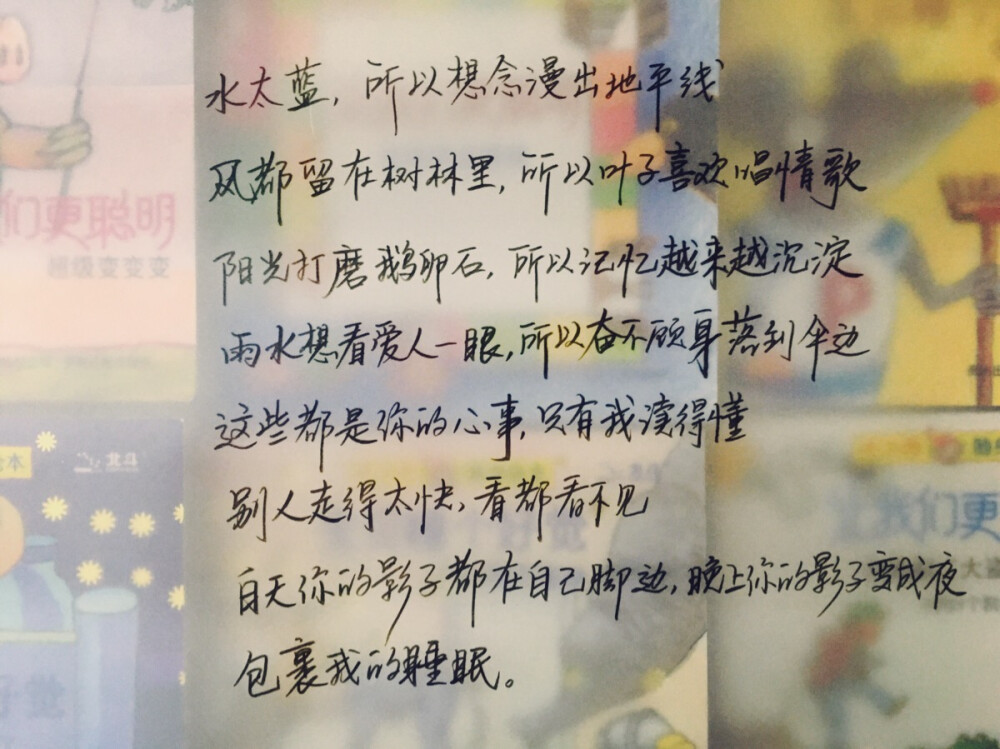 水太蓝，所以想念漫出地平线
风都留在树林里，所以叶子喜欢唱情歌
阳光打磨鹅卵石，所以记忆越来越沉淀
雨水想看爱人一眼，所以奋不顾身落到伞边
这些都是你的心事，只有我读得懂
别人走得太快，看都看不见
白天你的影子都在自己脚边，晚上你的影子变成夜
包裹我的睡眠。
们更聪明
超级变变变
本
北斗
好觉
我们更
大